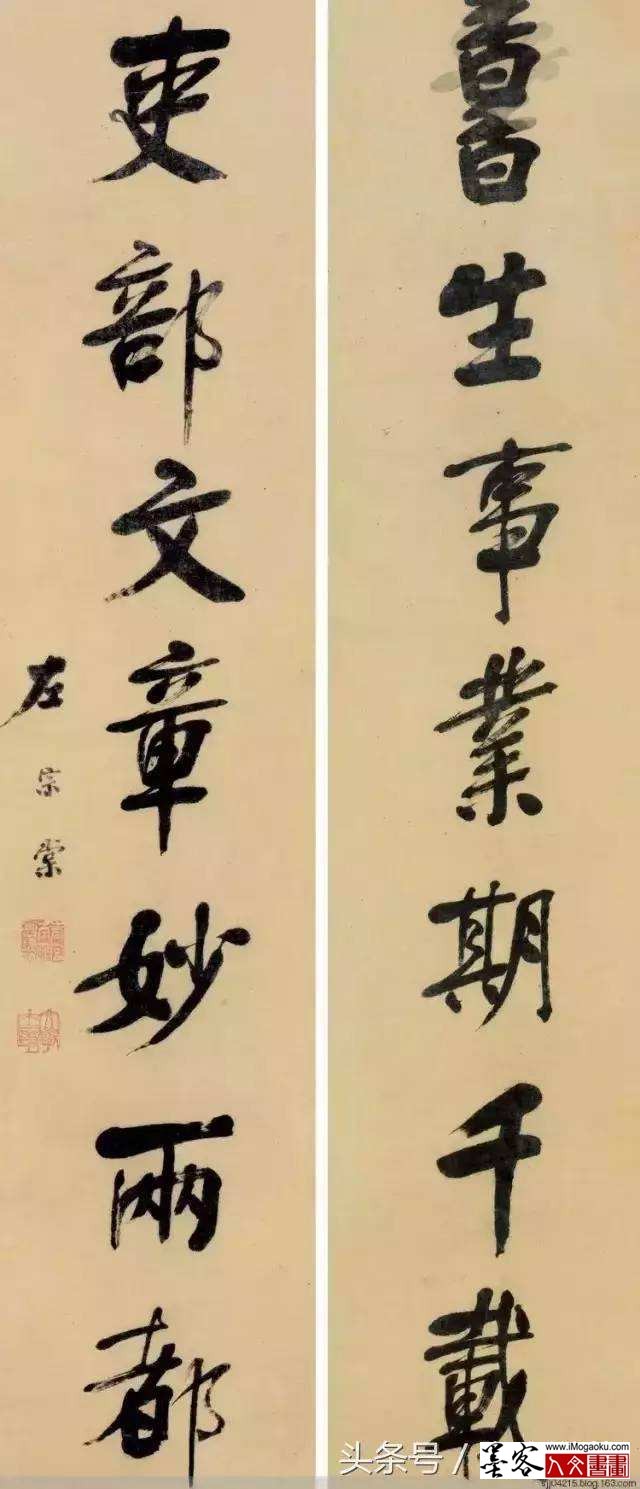 書生事業期千載
吏部文章妙兩都
左宗棠
头条号 / 墨客
www.iMogaoku.com
人文書畫